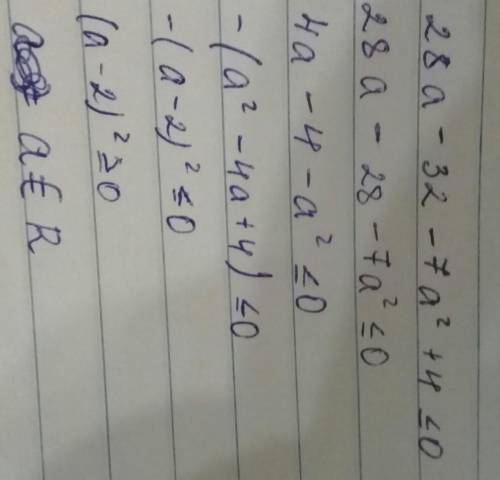 28a - 32 - 7a² + 4 ≤ 0
28a - 28 - 7a² ≤ 0
4a - 4 - a² ≤ 0
-(a² - 4a + 4) ≤ 0
-(a - 2)² ≤ 0
(a - 2)² ≥ 0
a ∈ R